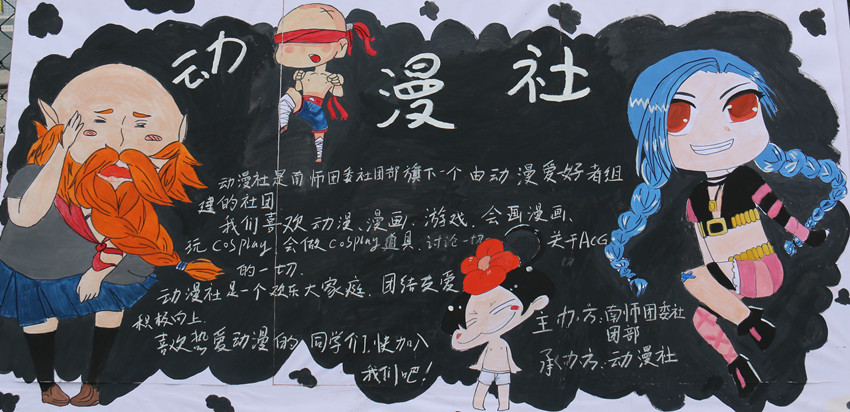 动漫社
动漫社是南师团委社团部旗下一个由动漫爱好者组
建的社团
我们喜欢动漫、漫画、游戏、会画漫画、
玩cosplay 会做cosplay道具、讨论一切 关于ACG
的一切.
动漫社是一个欢乐大家庭、团结友爱
积极向上
喜欢热爱动漫的同学们、快加入
我们吧!
主办方:南师团委社
团部
承办方:动漫社